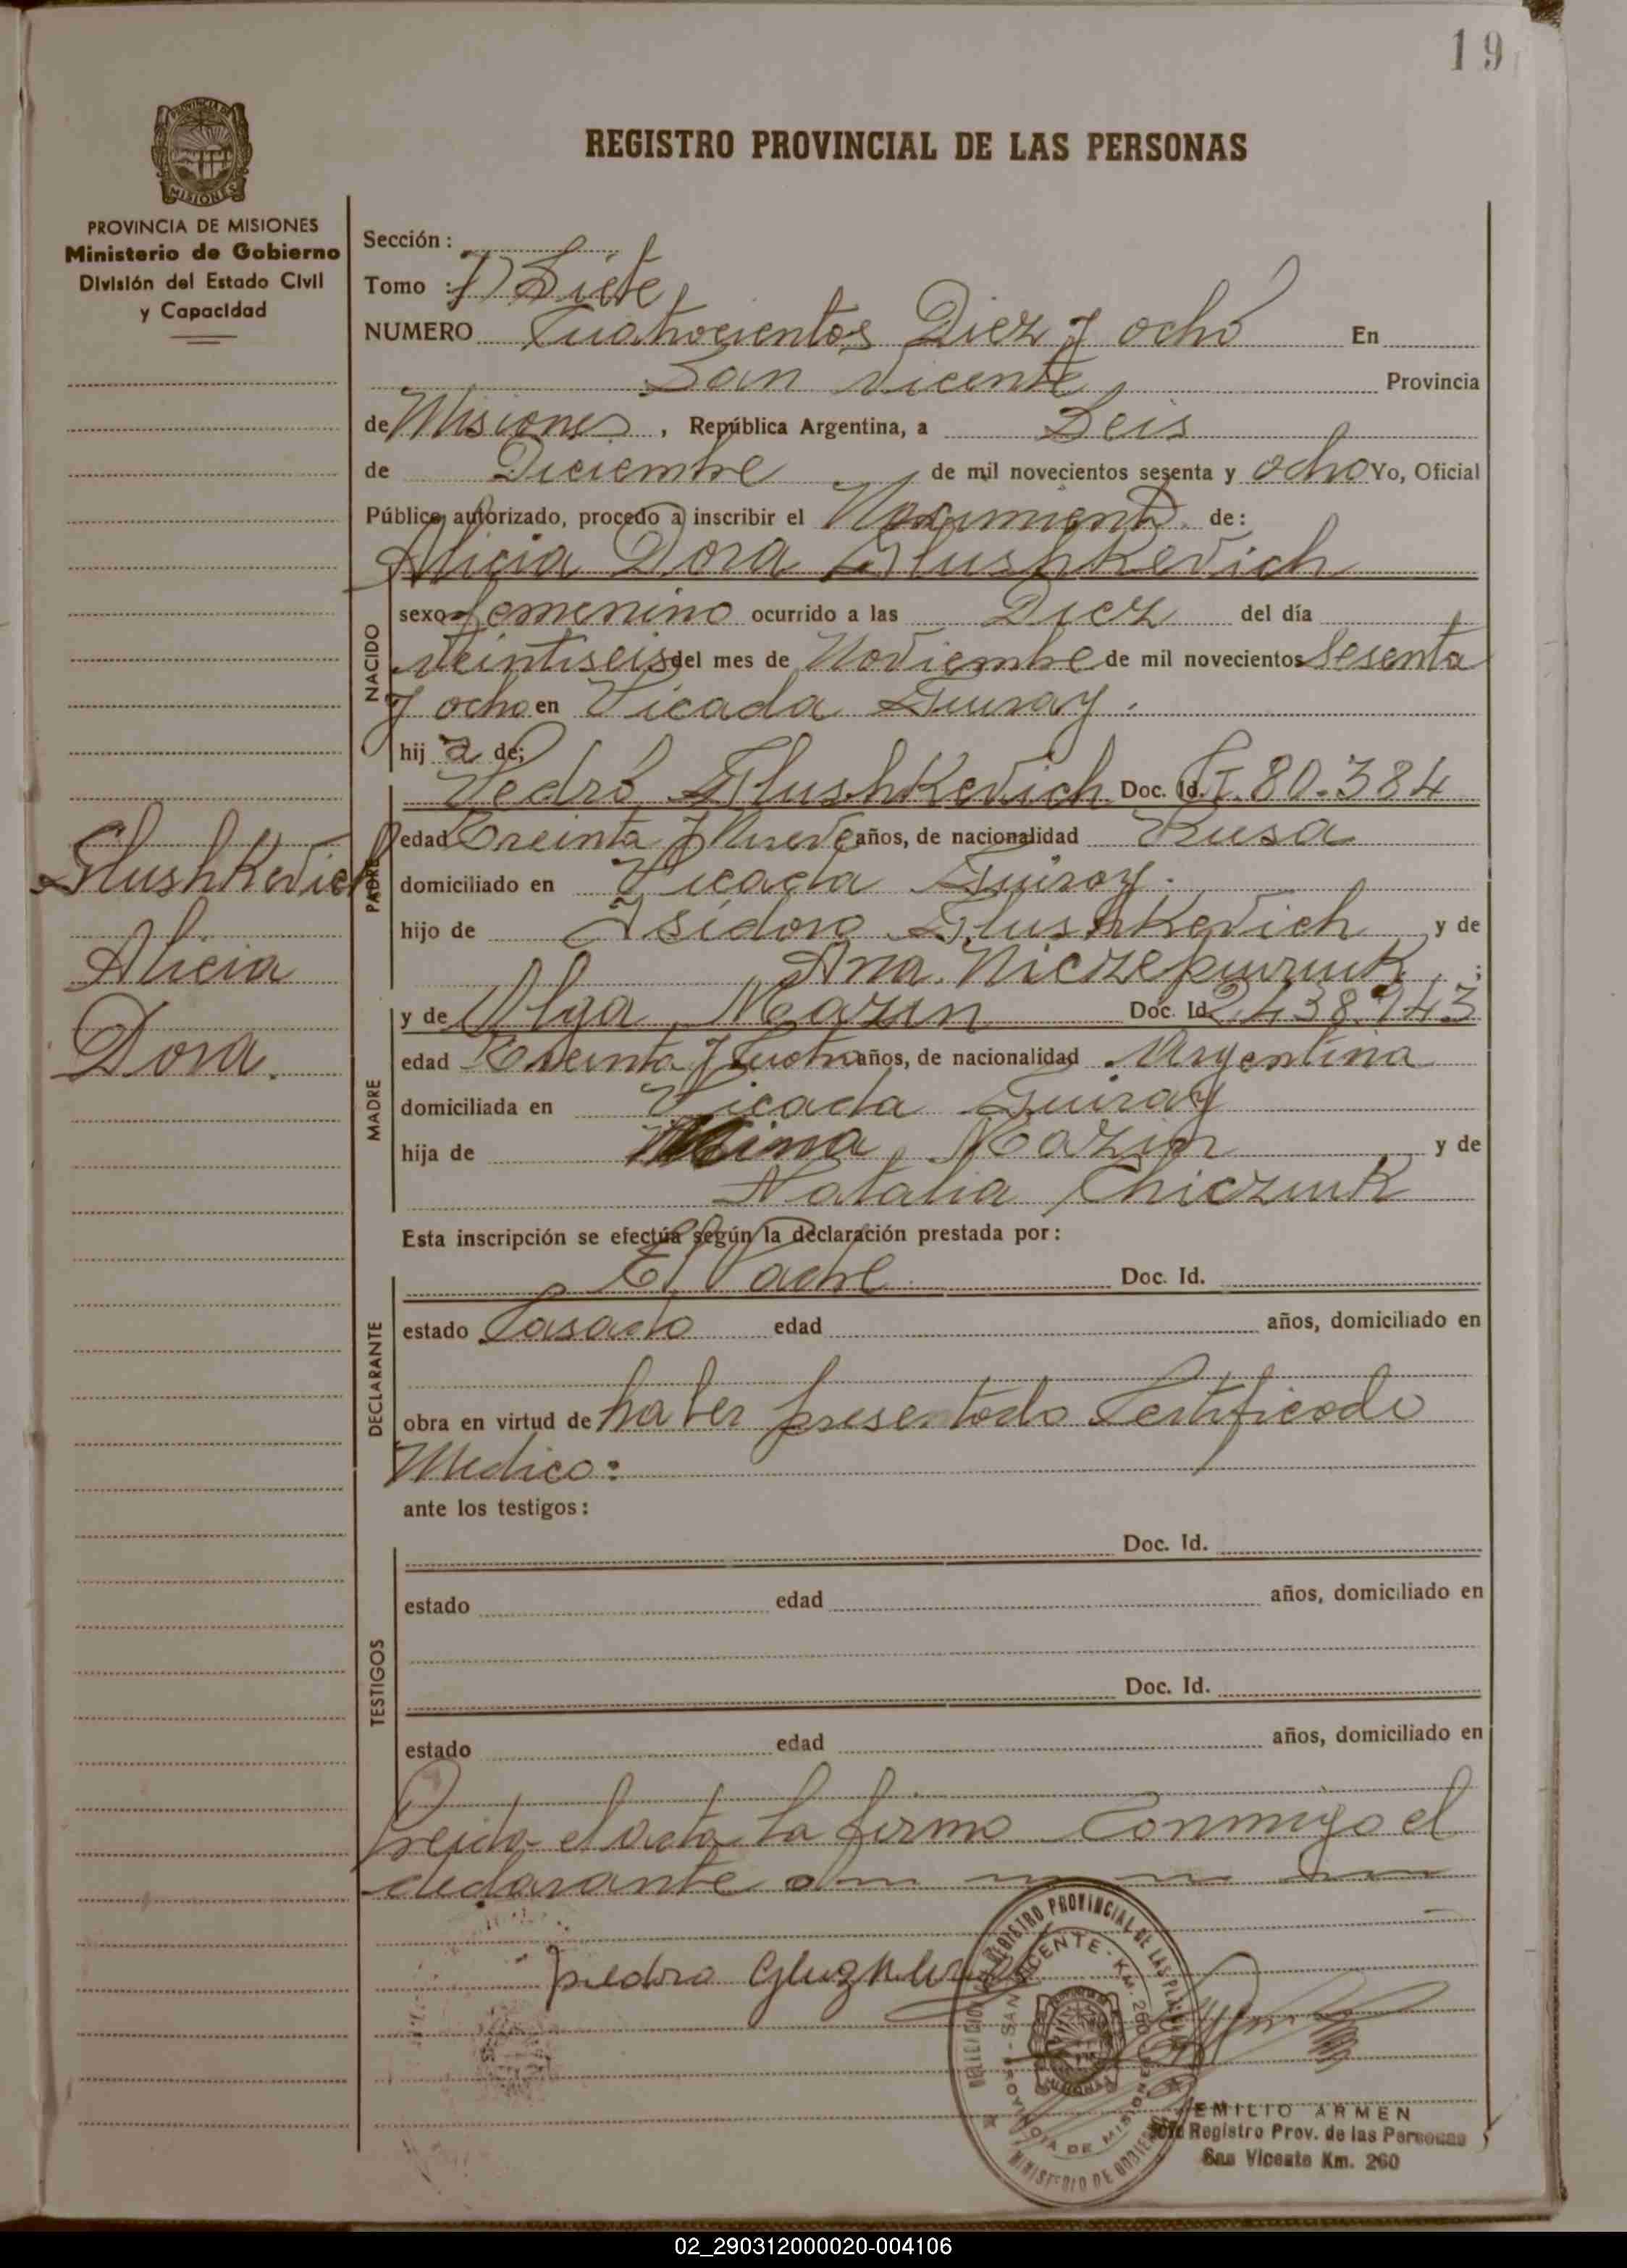 19
MISIONES
PROVINCIA DE MISIONES
Ministerio de Gobierno
División del Estado Civil
y Capacidad
REGISTRO PROVINCIAL DE LAS PERSONAS
Sección:
Tomo : 1) Siete
NUMERO Cuatrocientos Diez y ocho En
San Vicente Provincia
de Misiones, República Argentina, a Seis
de Diciembre de mil novecientos sesenta y ocho Yo, Oficial
Público autorizado, procedo a inscribir el Nacimiento de:
Alicia Dora Glushkevich
NACIDO
sexo femenino ocurrido a las Diez del día
veintiseis del mes de Noviembre de mil novecientos Sesenta
y ocho en Picada Guiray.
hija de;
Glushkevich
Alicia
Dora.
PADRE
Pedro Glushkevich Doc. Id. C.I. 80.384
edad Treinta y Nueve años, de nacionalidad Rusa
domiciliado en Picada Guiray.
hijo de Isidoro Glushkevich y de
Ana ;
MADRE
y de Olga Mazin Doc. Id. 2.438.943
edad Treinta y Cuatro años, de nacionalidad Argentina
domiciliada en Picada Guiray
hija de Mazin y de
Natalia Chiczuk
Esta inscripción se efectúa según la declaración prestada por:
DECLARANTE
El Padre Doc. Id.
estado Casado edad años, domiciliado en
obra en virtud de haber presentado Certificado
Medico:
ante los testigos:
TESTIGOS
Doc. Id.
estado edad años, domiciliado en
Doc. Id.
estado edad años, domiciliado en
Leida el acta la firma Conmigo el
declarante
pedro
REGISTRO PROVINCIAL DE LAS
SAN VICENTE - KM. 260
PROVINCIA DE MISIONES
MINISTERIO DE GOBIERNO
EMILIO ARMEN
Registro Prov. de las Personas
San Vicente Km. 260
02_290312000020-004106